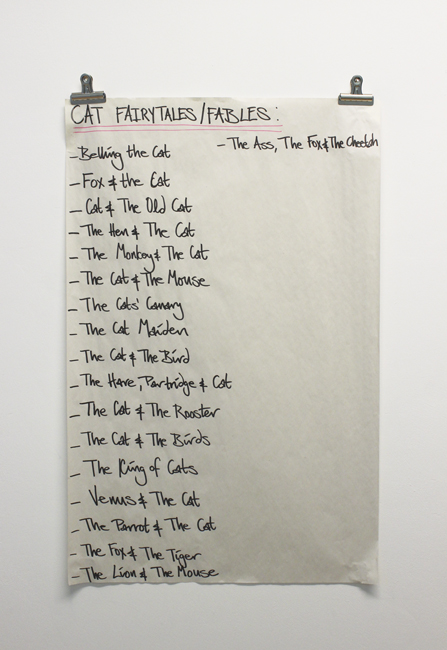 CAT FAIRYTALES/FABLES:
- Belling the Cat
- Fox & the Cat
- Cat & The Old Cat
- The Hen & The Cat
- The Monkey & The Cat
- The Cat & The Mouse
- The Cats' Canary
- The Cat Maiden
- The Cat & The Bird
- The Hare, Partridge & Cat
- The Cat & The Rooster
- The Cat & The Birds
- The King of Cats
- Venus & The Cat
- The Parrot & The Cat
- The Fox & The Tiger
- The Lion & The Mouse
- The Ass, The Fox & The Cheetah